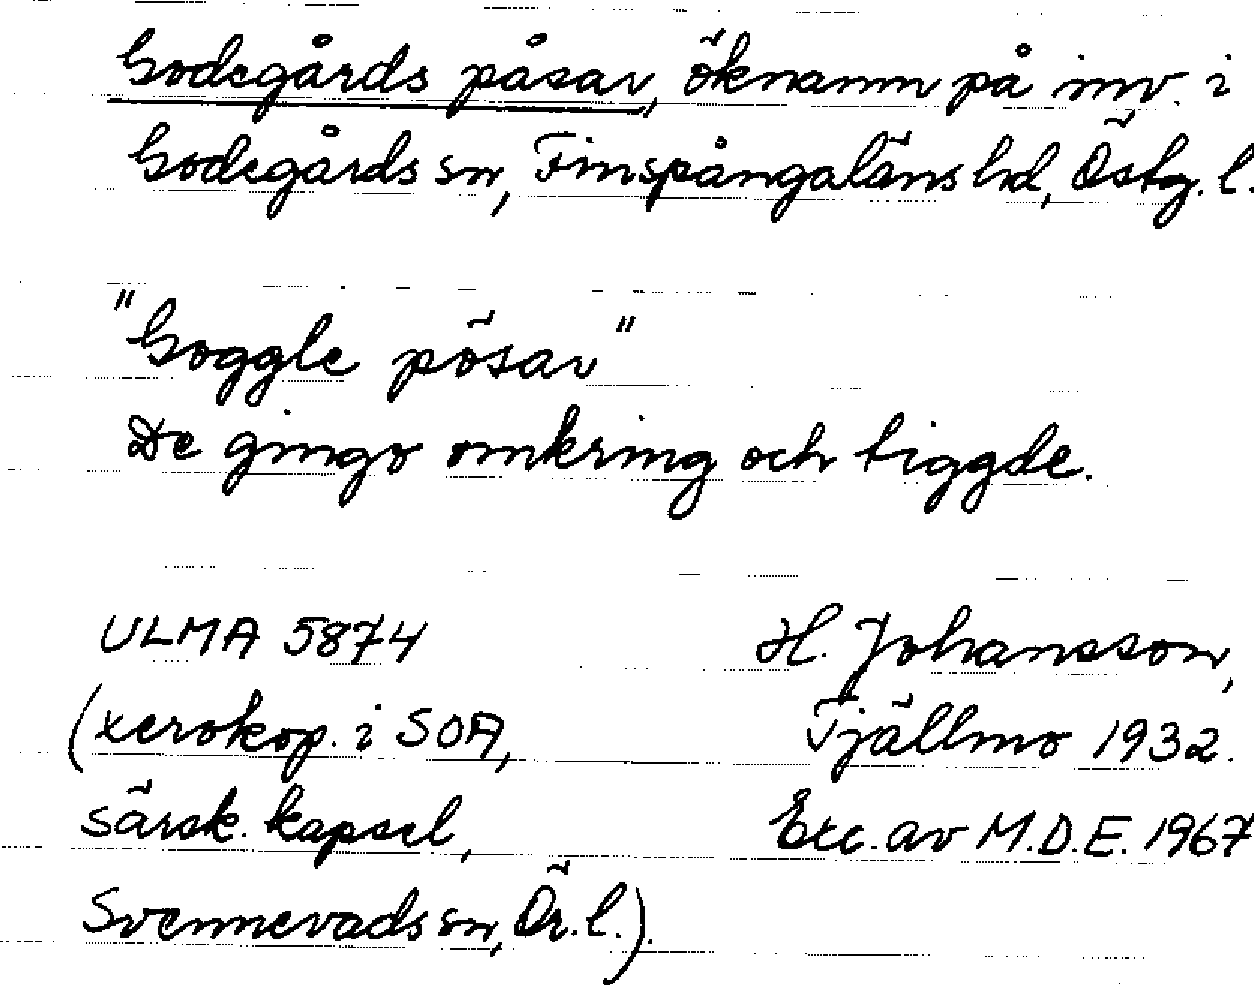 Godegårds påsar, öknamn på inv. i
Godegårds sn, Finspångaläns hd, Östg. l.
"Goggle pösar"
De gingo omkring och tiggde.
ULMA 5874
(xerokop. i SOA,
särsk. kapsel,
Svennevads sn, Ör. l.).
H. Johansson,
Tjällmo 1932.
Exc. av M.D.E. 1967